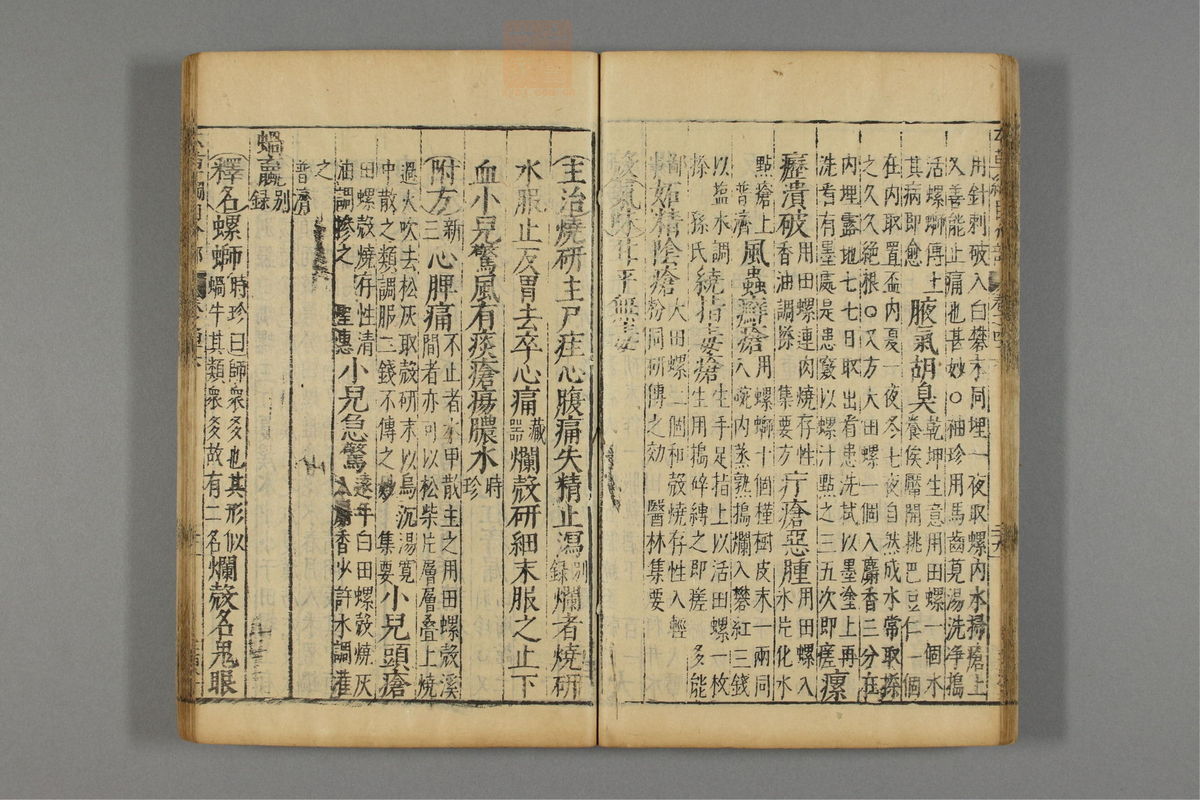 用針刺破入白礬末同埋一夜取螺內水掃瘡上
又善能止痛也甚妙○袖珍用馬齒莧湯洗净搗
活螺螄傅上其病即愈
腋氣胡臭乾坤生意用田螺一個水養俟靨開挑巴豆仁一個
在內取置盃內夏一夜冬七夜自然成水常取搽
之久久絶根○又方大田螺一個入麝香三分在
內埋露地七七日取出看患洗拭以墨塗上再
洗看有墨處是患竅以螺汁點之三五次即瘥
瘰癧潰破用田螺連肉燒存性香油調搽 集要方
疔瘡惡腫用田螺入氷片化水點瘡上 普濟
風蟲癬瘡用螺螄十個槿樹皮末一兩同入碗內蒸熟搗爛入礬紅三錢
以盐水調搽 孫氏
繞指毒瘡生手足指上以活田螺一枚生用搗碎縛之即瘥 多能鄙事
妬精陰瘡大田螺二個和殼燒存性入輕粉同研傅之効 醫林集要
殼氣味甘平無毒
主治燒研主尸疰心腹痛失精止瀉别錄爛者燒研
水服止反胃去卒心痛藏器爛殼研細末服之止下
血小兒驚風有痰瘡瘍膿水時珍
附方新三心脾痛不止者水甲散主之用田螺殼溪間者亦可以松柴片層層叠上燒
過火吹去松灰取殼研末以烏沉湯寬中散之類調服二錢不傳之妙 集要
小兒頭瘡田螺殼燒存性清油調摻之 聖惠
小兒急驚遠年白田螺殼燒灰入麝香少許水調灌之 普濟
蝸蠃别錄
釋名螺螄時珍曰師衆多也其形似蝸牛其類衆多故有二名爛殼名鬼眼